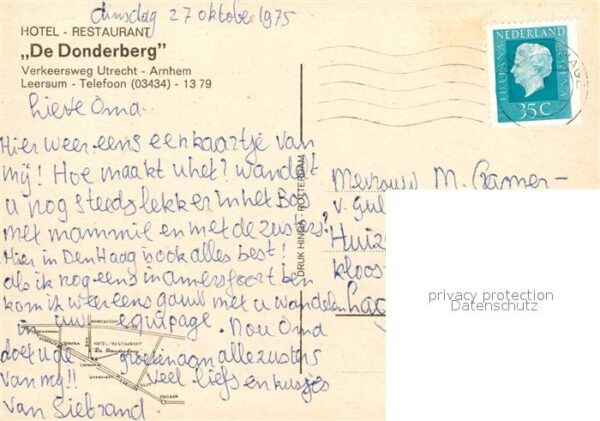 dinsdag 27 oktober 1975
HOTEL - RESTAURANT
„De Donderberg"
Verkeersweg Utrecht - Arnhem
Leersum - Telefoon (03434) - 13 79
Lieve Oma.
Hier weer eens een kaartje van
mij! Hoe maakt u het? wandelt
u nog steeds lekker in het Bos
met mammie en met de zusters?
Hier in Den Haag is ook alles best!
als ik nog eens in amersfoort ben
kom ik weer eens gauw met u wandelen
in uw equipage. Nou Oma
doet u de groeten aan alle zusters
van mij!! veel liefs en kusjes
van Siebrand.
HOTEL-RESTAURANT
"De Donderberg"
DRUK HINDA - ROTTERDAM
NEDERLAND
JULIANA REGINA
35 C
Mevrouw M. Cramer-
v. Gul
Huiz
kloos
Laa
privacy protection
Datenschutz